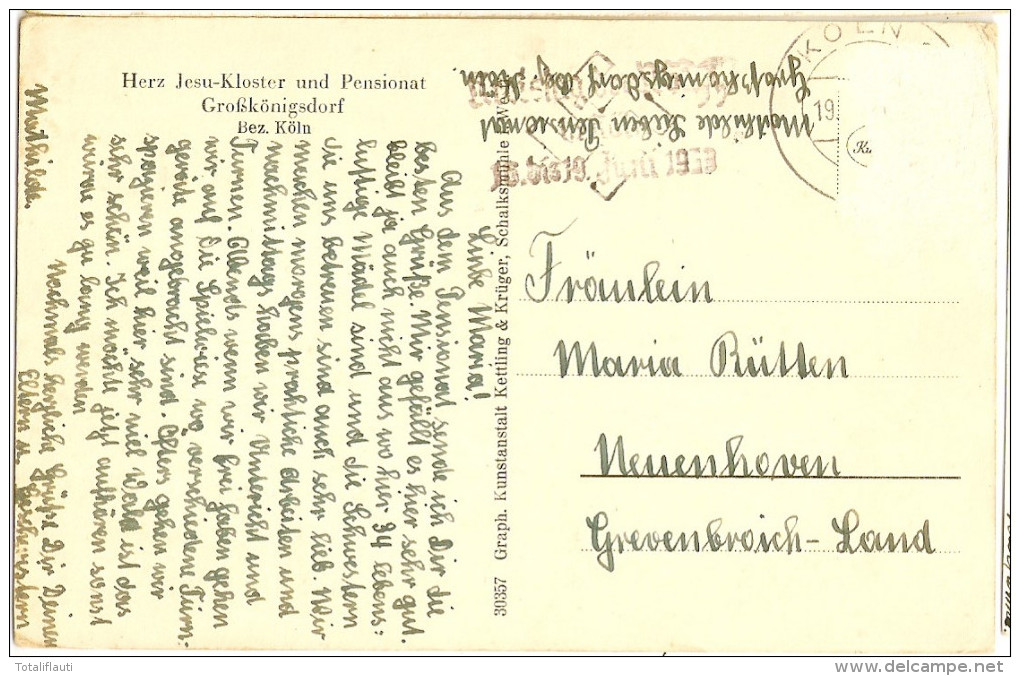 Herz Jesu-Kloster und Pensionat
Großkönigsdorf
Bez. Köln
Liebe Maria!
Aus dem Pensionat sende ich Dir die
besten Grüße. Mir gefällt es hier sehr gut
bleibt ja auch nicht aus wo hier 34 lebens:
lustige Mädel sind und die Schwestern
die uns betreuen sind auch sehr lieb. Wir
machen morgens praktiche Arbeiten und
nachmittags haben wir Unterricht und
Turnen. Abends wenn wir frei haben gehen
wir auf die Spielwiese wo verschiedene Turn.
geräte angebracht sind. Öfters gehen wir
spazieren weil hier sehr viel Wald ist das
sehr schön. Ich möchte jetzt aufhören sonst
würde es zu lang werden
Nochmals herzliche Grüße Dir Deinen
Eltern u. Geschwistern
Mathilde.
30357 Graph. Kunstanstalt Kettling & Krüger, Schalksmühle i. We
Mathilde Pensionat
Großkönigsdorf Bez. Köln.
KÖLN
19.
18. bis 19. Juli 1953
Fräulein
Maria Rütten
Neuenhoven
Grevenbroich-Land
Totaliflauti
www.delcampe.net